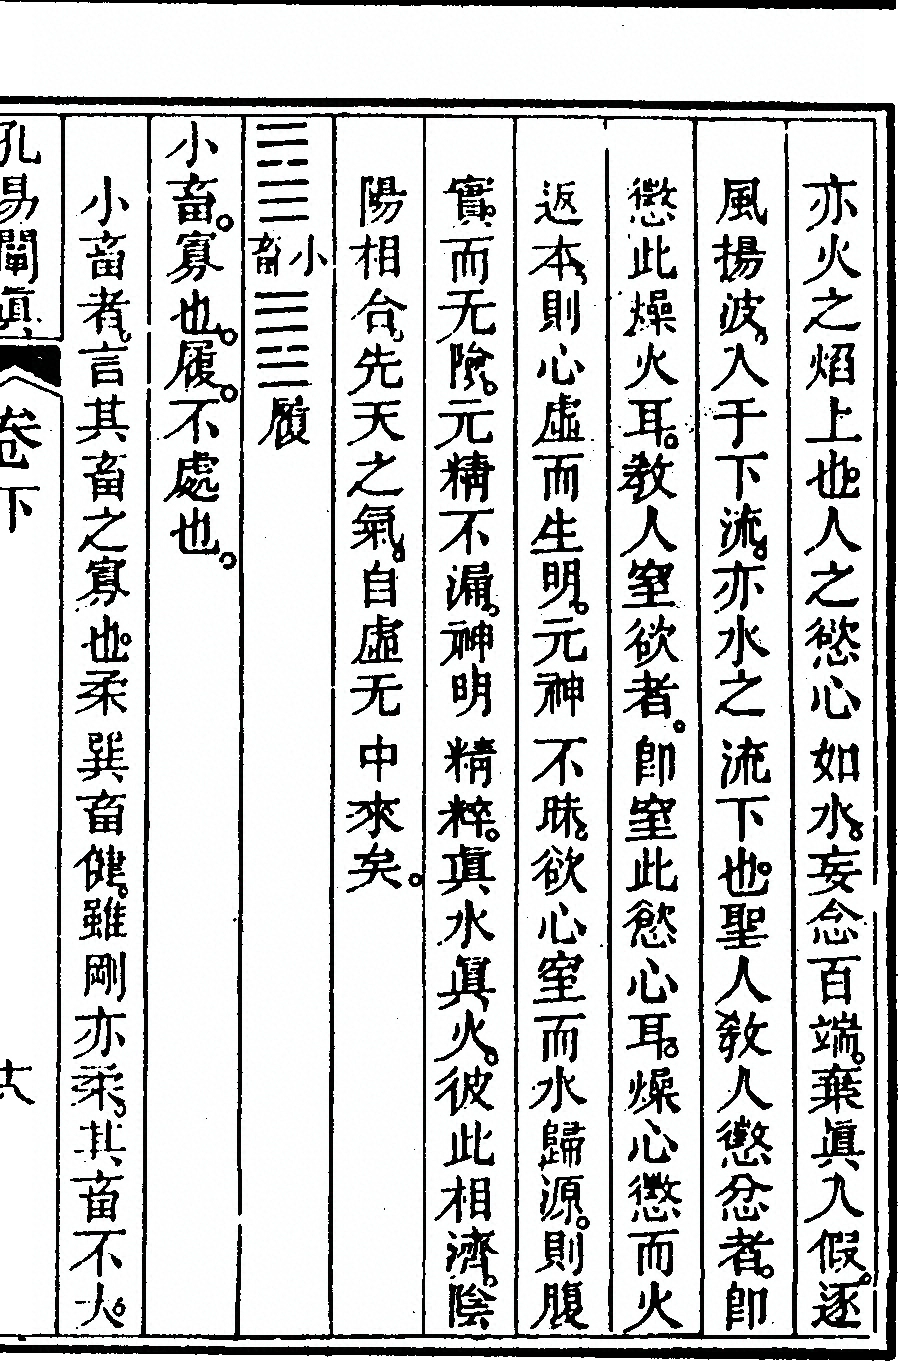 亦火之焰上也。人之慾心如水。妄念百端。棄眞入假。逐
風揚波。入于下流。亦水之流下也。聖人教人懲忿者。卽
懲此燥火耳。教人窒欲者。卽窒此慾心耳。燥心懲而火
返本。則心虛而生明。元神不昧。欲心窒而水歸源。則腹
實。而无陰。元精不漏。神明精粹。眞水眞火。彼此相濟。陰
陽相合。先天之氣。自虛无中來矣。
小畜 履
小畜。寡也。履。不處也。
小畜者。言其畜之寡也。柔巽畜健。雖剛亦柔。其畜不大。
孔易闡眞 卷下 十八